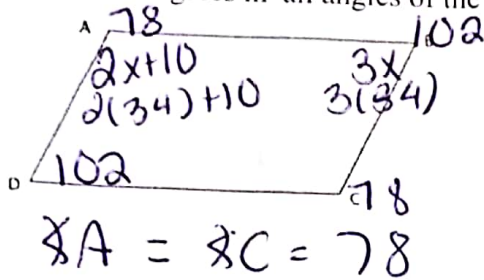 in all angles of the
A 78 102
2x+10 3x
2(34)+10 3(34)
D 102 C 78
∡A = ∡C = 78